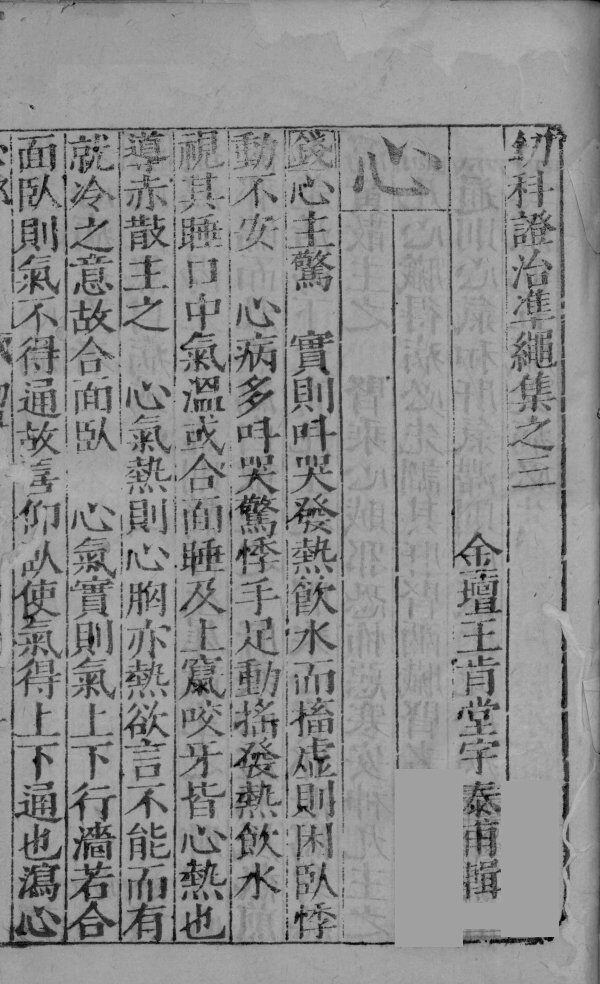 幼科證治準繩集之三
金壇王肯堂宇泰甫輯
心
錢心主驚　實則呌哭發熱飲水而搐虛則困臥悸
動不安　心病多呌哭驚悸手足動搖發熱飲水
視其睡口中氣溫或合面睡及上竄咬牙皆心熱也
導赤散主之　心氣熱則心胸亦熱欲言不能而有
就冷之意故合面臥　心氣實則氣上下行濇若合
面臥則氣不得通故喜仰臥使氣得上下通也瀉心